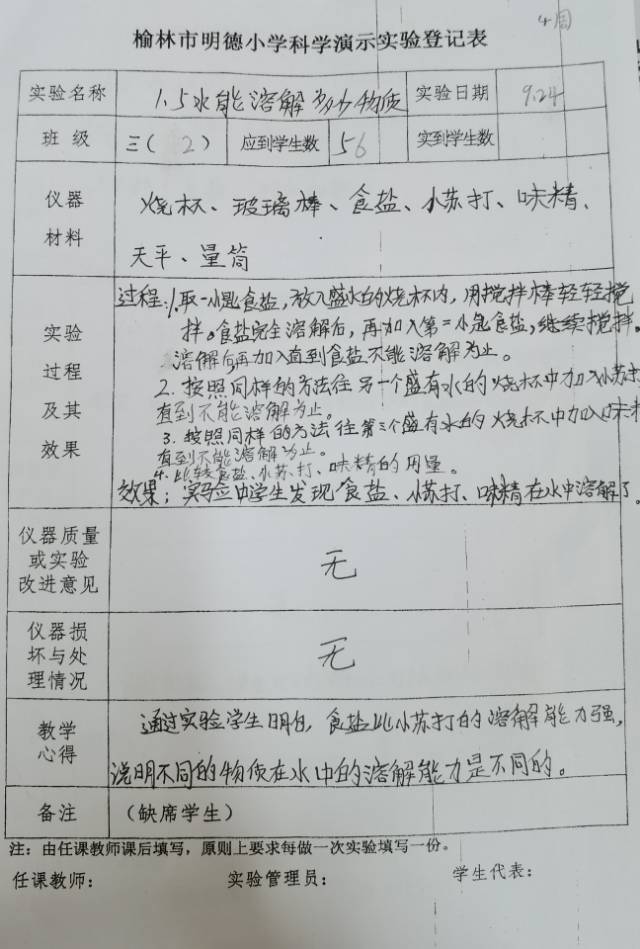 4周
榆林市明德小学科学演示实验登记表
实验名称 1.5水能溶解多少物质 实验日期 9.24
班 级 三( 2 ) 应到学生数 56 实到学生数
仪器 烧杯、玻璃棒、食盐、小苏打、味精、
材料 天平、量筒
实验
过程
及其
效果
过程:1.取一小匙食盐,放入盛水的烧杯内,用搅拌棒轻轻搅
拌。食盐完全溶解后,再加入第二小匙食盐,继续搅拌。
溶解后再加入直到食盐不能溶解为止。
2. 按照同样的方法往另一个盛有水的烧杯中加入小苏打
直到不能溶解为止。
3. 按照同样的方法往第三个盛有水的烧杯中加入味精
直到不能溶解为止。
4. 比较食盐、小苏打、味精的用量。
效果:实验中学生发现食盐、小苏打、味精在水中溶解了。
仪器质量
或实验
改进意见
无
仪器损
坏与处
理情况
无
教学
心得
通过实验学生明白,食盐比小苏打的溶解能力强,
说明不同的物质在水中的溶解能力是不同的。
备注 (缺席学生)
注:由任课教师课后填写,原则上要求每做一次实验填写一份。
任课教师: 实验管理员: 学生代表: